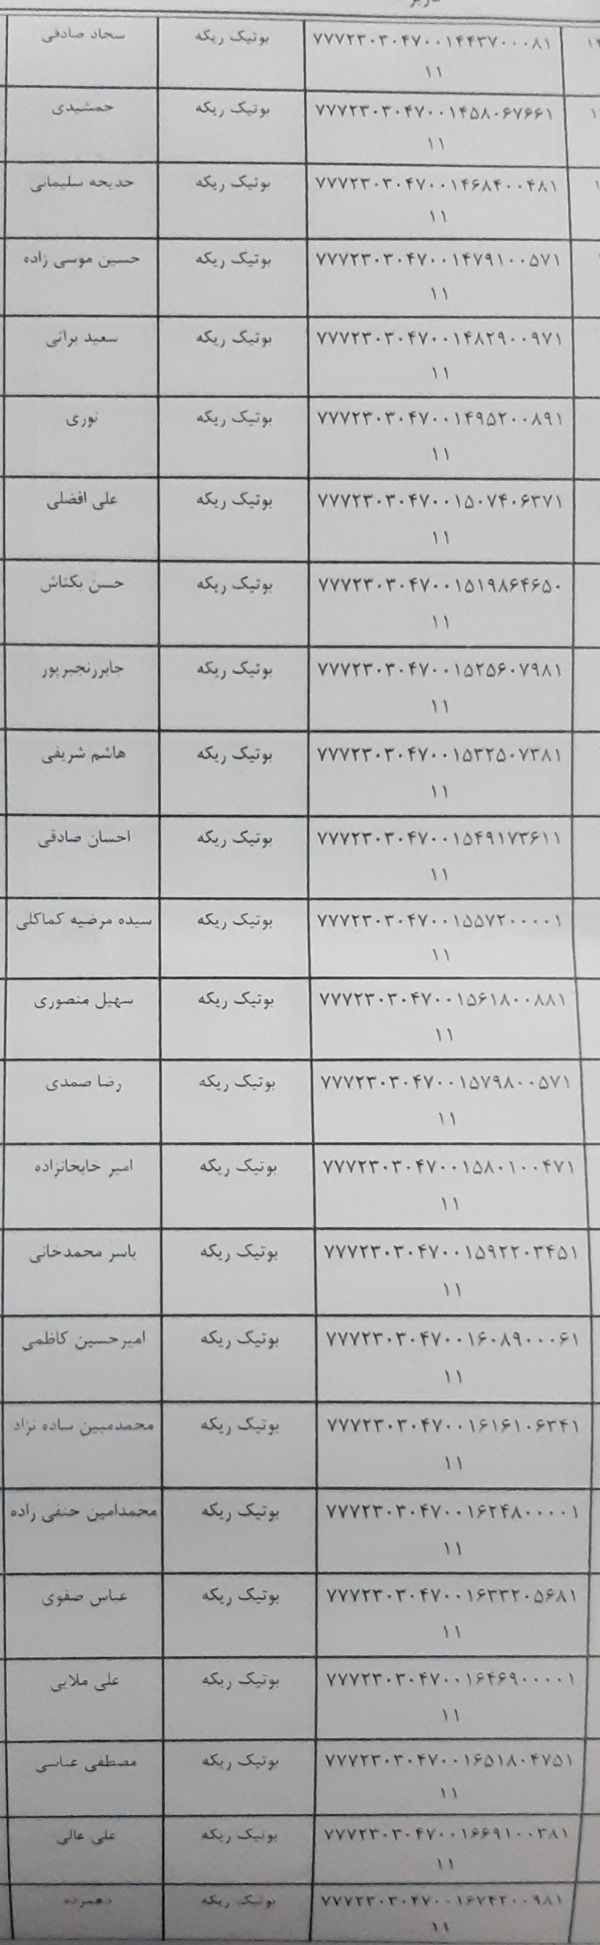 ۷۷۷۲۳۰۳۰۴۷۰۰۱۴۴۳۷۰۰۰۸۱ بوتیک ریکه سجاد صادقی
۱۱
۷۷۷۲۳۰۳۰۴۷۰۰۱۴۵۸۰۶۷۶۶۱ بوتیک ریکه جمشیدی
۱۱
۷۷۷۲۳۰۳۰۴۷۰۰۱۴۶۸۴۰۰۴۸۱ بوتیک ریکه خدیجه سلیمانی
۱۱
۷۷۷۲۳۰۳۰۴۷۰۰۱۴۷۹۱۰۰۵۷۱ بوتیک ریکه حسین موسی زاده
۱۱
۷۷۷۲۳۰۳۰۴۷۰۰۱۴۸۲۹۰۰۹۷۱ بوتیک ریکه سعید براتی
۱۱
۷۷۷۲۳۰۳۰۴۷۰۰۱۴۹۵۲۰۰۸۹۱ بوتیک ریکه نوری
۱۱
۷۷۷۲۳۰۳۰۴۷۰۰۱۵۰۷۴۰۶۳۷۱ بوتیک ریکه علی افضلی
۱۱
۷۷۷۲۳۰۳۰۴۷۰۰۱۵۱۹۸۶۴۶۵۰ بوتیک ریکه حسن بکتاش
۱۱
۷۷۷۲۳۰۳۰۴۷۰۰۱۵۲۵۶۰۷۹۸۱ بوتیک ریکه جابررنجبرپور
۱۱
۷۷۷۲۳۰۳۰۴۷۰۰۱۵۳۲۵۰۷۳۸۱ بوتیک ریکه هاشم شریفی
۱۱
۷۷۷۲۳۰۳۰۴۷۰۰۱۵۴۹۱۷۳۶۱۱ بوتیک ریکه احسان صادقی
۱۱
۷۷۷۲۳۰۳۰۴۷۰۰۱۵۵۷۲۰۰۰۰۱ بوتیک ریکه سیده مرضیه کماکلی
۱۱
۷۷۷۲۳۰۳۰۴۷۰۰۱۵۶۱۸۰۰۸۸۱ بوتیک ریکه سهیل منصوری
۱۱
۷۷۷۲۳۰۳۰۴۷۰۰۱۵۷۹۸۰۰۵۷۱ بوتیک ریکه رضا صمدی
۱۱
۷۷۷۲۳۰۳۰۴۷۰۰۱۵۸۰۱۰۰۴۷۱ بوتیک ریکه امیر خابخانزاده
۱۱
۷۷۷۲۳۰۳۰۴۷۰۰۱۵۹۲۲۰۳۴۵۱ بوتیک ریکه یاسر محمدخانی
۱۱
۷۷۷۲۳۰۳۰۴۷۰۰۱۶۰۸۹۰۰۰۶۱ بوتیک ریکه امیرحسین کاظمی
۱۱
۷۷۷۲۳۰۳۰۴۷۰۰۱۶۱۶۱۰۶۳۴۱ بوتیک ریکه محمدمبین ساده نژاد
۱۱
۷۷۷۲۳۰۳۰۴۷۰۰۱۶۲۴۸۰۰۰۰۱ بوتیک ریکه محمدامین حنفی زاده
۱۱
۷۷۷۲۳۰۳۰۴۷۰۰۱۶۳۳۲۰۵۶۸۱ بوتیک ریکه عباس صفوی
۱۱
۷۷۷۲۳۰۳۰۴۷۰۰۱۶۴۶۹۰۰۰۰۱ بوتیک ریکه علی ملایی
۱۱
۷۷۷۲۳۰۳۰۴۷۰۰۱۶۵۱۸۰۴۷۵۱ بوتیک ریکه مصطفی عباسی
۱۱
۷۷۷۲۳۰۳۰۴۷۰۰۱۶۶۹۱۰۰۳۸۱ بوتیک ریکه علی عالی
۱۱
۷۷۷۲۳۰۳۰۴۷۰۰۱۶۷۴۲۰۰۹۸۱ بوتیک ریکه دهمرده
۱۱